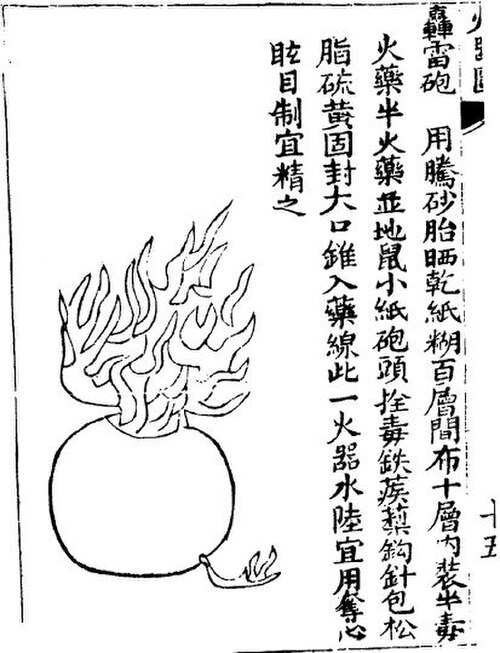 轟雷砲　用騰砂胎晒乾紙糊百層間布十層內装半毒
火藥半火藥並地鼠小紙砲頭拴毒鉄蒺蔾鈎針包松
脂硫黄固封大口錐入藥線此一火噐水陸宜用奪心
眩目制宜精之
十五